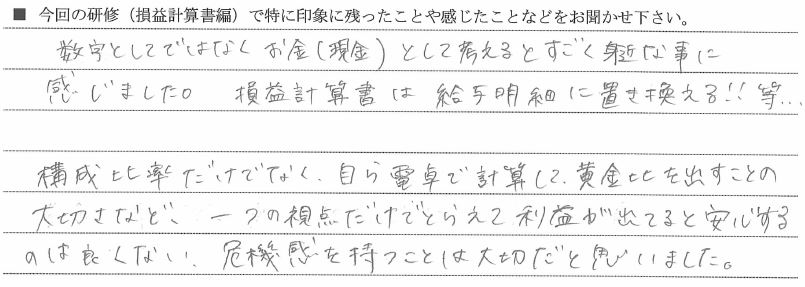 ■ 今回の研修（損益計算書編）で特に印象に残ったことや感じたことなどをお聞かせ下さい。
数字としてではなくお金(現金)として考えるとすごく身近な事に
感じました。 損益計算書は給与明細に置き換える!! 等...
構成比率だけでなく、自ら電卓で計算して、黄金比を出すことの
大切さなど、一つの視点だけでとらえて利益が出てると安心する
のは良くない、危機感を持つことは大切だと思いました。